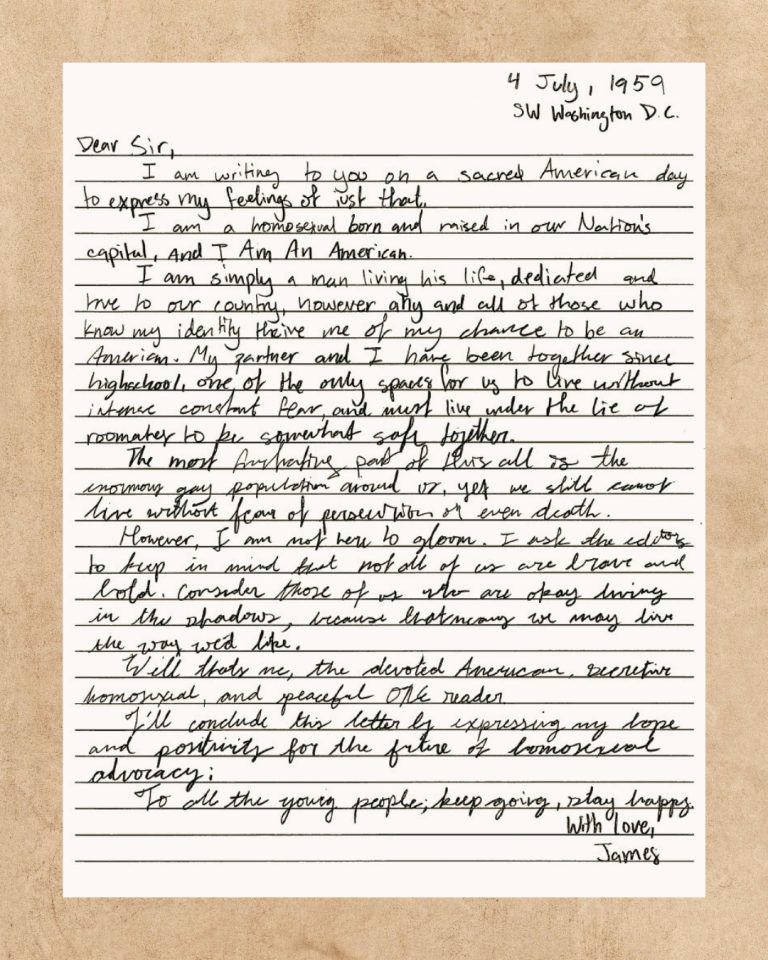 4 July, 1959
SW Washington D.C.
Dear Sir,
I am writing to you on a sacred American day
to express my feelings of just that.
I am a homosexual born and raised in our Nation's
capital, And I Am An American.
I am simply a man living his life, dedicated and
true to our country, however any and all of those who
know my identity thrive me of my chance to be an
American. My partner and I have been together since
highschool, one of the only spaces for us to live without
intense constant fear, and must live under the lie of
roomates to be somewhat safe together.
The most frustrating part of this all is the
enormous gay population around us, yet we still cannot
live without fear of persecution or even death.
However, I am not here to gloom. I ask the editors
to keep in mind that not all of us are brave and
bold. Consider those of us who are okay living
in the shadows, because that means we may live
the way we'd like.
Well thats me, the devoted American, secretive
homosexual, and peaceful ONE reader
I'll conclude this letter by expressing my hope
and positivity for the future of homosexual
advocacy:
To all the young people; keep going, stay happy.
With love,
James